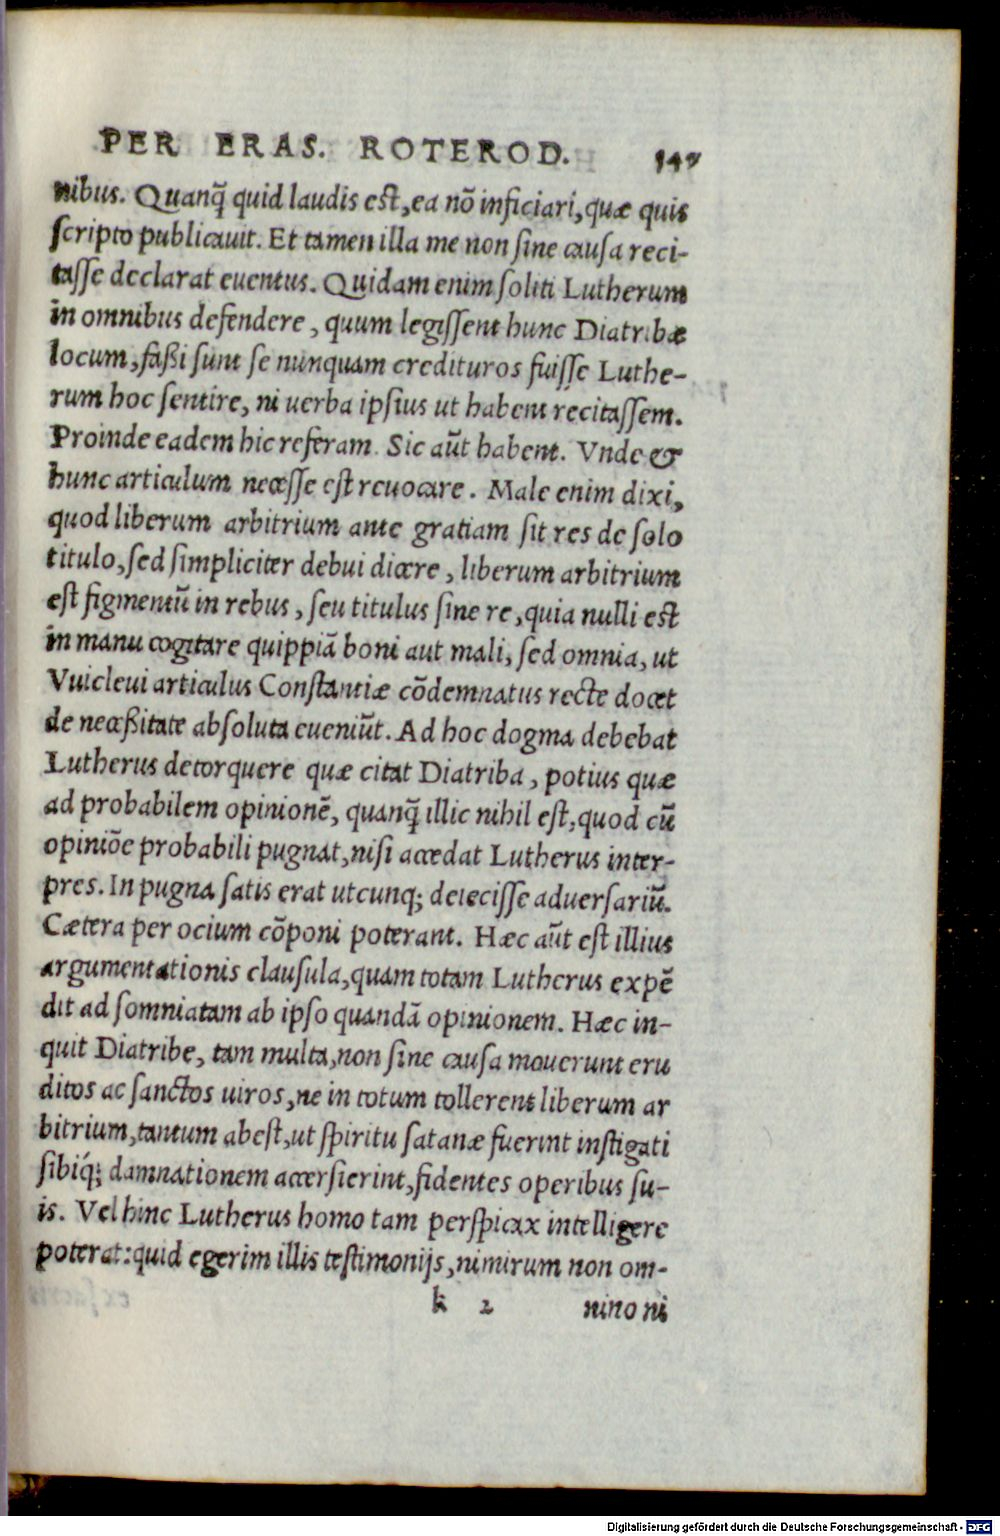 PER ERAS. ROTEROD. 147
nibus. Quanq̃ quid laudis est, ea nõ inficiari, quæ quis
scripto publicauit. Et tamen illa me non sine causa reci-
tasse declarat euentus. Quidam enim soliti Lutherum
in omnibus defendere, quum legissent hunc Diatribæ
locum, faßi sunt se nunquam credituros fuisse Luthe-
rum hoc sentire, ni uerba ipsius ut habent recitassem.
Proinde eadem hic referam. Sic aũt habent. Vnde &
hunc articulum necesse est reuocare. Male enim dixi,
quod liberum arbitrium ante gratiam sit res de solo
titulo, sed simpliciter debui dicere, liberum arbitrium
est figmentũ in rebus, seu titulus sine re, quia nulli est
in manu cogitare quippiã boni aut mali, sed omnia, ut
Vuicleui articulus Constantiæ cõdemnatus recte docet
de neceßitate absoluta eueniũt. Ad hoc dogma debebat
Lutherus detorquere quæ citat Diatriba, potius quæ
ad probabilem opinionẽ, quanq̃ illic nihil est, quod cũ
opiniõe probabili pugnat, nisi accedat Lutherus inter-
pres. In pugna satis erat utcunq; deiecisse aduersariũ.
Cætera per ocium cõponi poterant. Hæc aũt est illius
argumentationis clausula, quam totam Lutherus expẽ
dit ad somniatam ab ipso quandã opinionem. Hæc in-
quit Diatribe, tam multa, non sine causa mouerunt eru
ditos ac sanctos uiros, ne in totum tollerent liberum ar
bitrium, tantum abest, ut spiritu satanæ fuerint instigati
sibiq́; damnationem accersierint, fidentes operibus su-
is. Vel hinc Lutherus homo tam perspicax intelligere
poterat: quid egerim illis testimonijs, nimirum non om-
k 2 nino ni
Digitalisierung gefördert durch die Deutsche Forschungsgemeinschaft - DFG